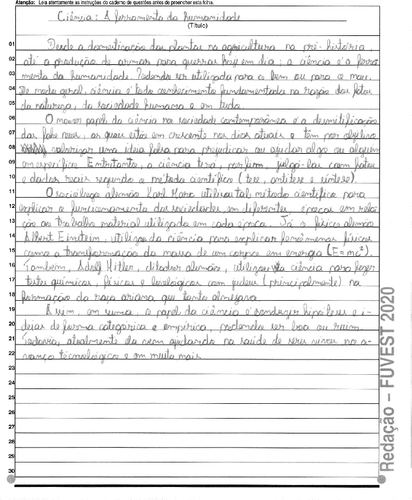 Atenção: Leia atentamente as instruções do caderno de questões antes de preencher esta folha.
Ciência: A ferramenta da humanidade
(Título)
01 Desde a domesticação das plantas na agricultura na pré-história,
02 até a produção de armas para guerras hoje em dia, a ciência é a ferra
03 menta da humanidade. Podendo ser utilizada para o bem ou para o mau.
04 De modo geral, ciência é todo conhecimento fundamentado na razão dos fatos
05 da natureza, da sociedade humana e em tudo.
06 O maior papel da ciência na sociedade contemporânea é a desmitificação
07 das fake news, as quais estão em crescente nos dias atuais e têm por objetivo
08 valorizar uma ideia falsa para prejudicar ou ajudar algo ou alguém
09 em específico. Entretanto, a ciência terá, por fim, julgá-las com fatos
10 e dados reais segundo o método científico (tese, antítese e síntese).
11 O sociólogo alemão Karl Marx utilizou tal método científico para
12 explicar o funcionamento das sociedades em diferentes épocas em rela
13 ção ao trabalho material utilizado em cada época. Já o físico alemão
14 Albert Einstein, utilizou da ciência para explicar fenômenos físicos
15 como a transformação da massa de um corpo em energia (E=mc²).
16 Também, Adolf Hitler, ditador alemão, utilizou da ciência para fazer
17 testes químicos, físicos e biológicos com judeus (principalmente) na
18 formação da raça ariana que tanto almejava.
19 A ver, em suma, o papel da ciência é conduzir hipóteses e i-
20 deias de forma categórica e empírica, podendo ser boa ou ruim.
21 Todavia, atualmente ela vem ajudando na saúde de seres vivos no a-
22 vanço tecnológico e em muito mais.
23
24
25
26
27
28
29
30
Redação – FUVEST 2020